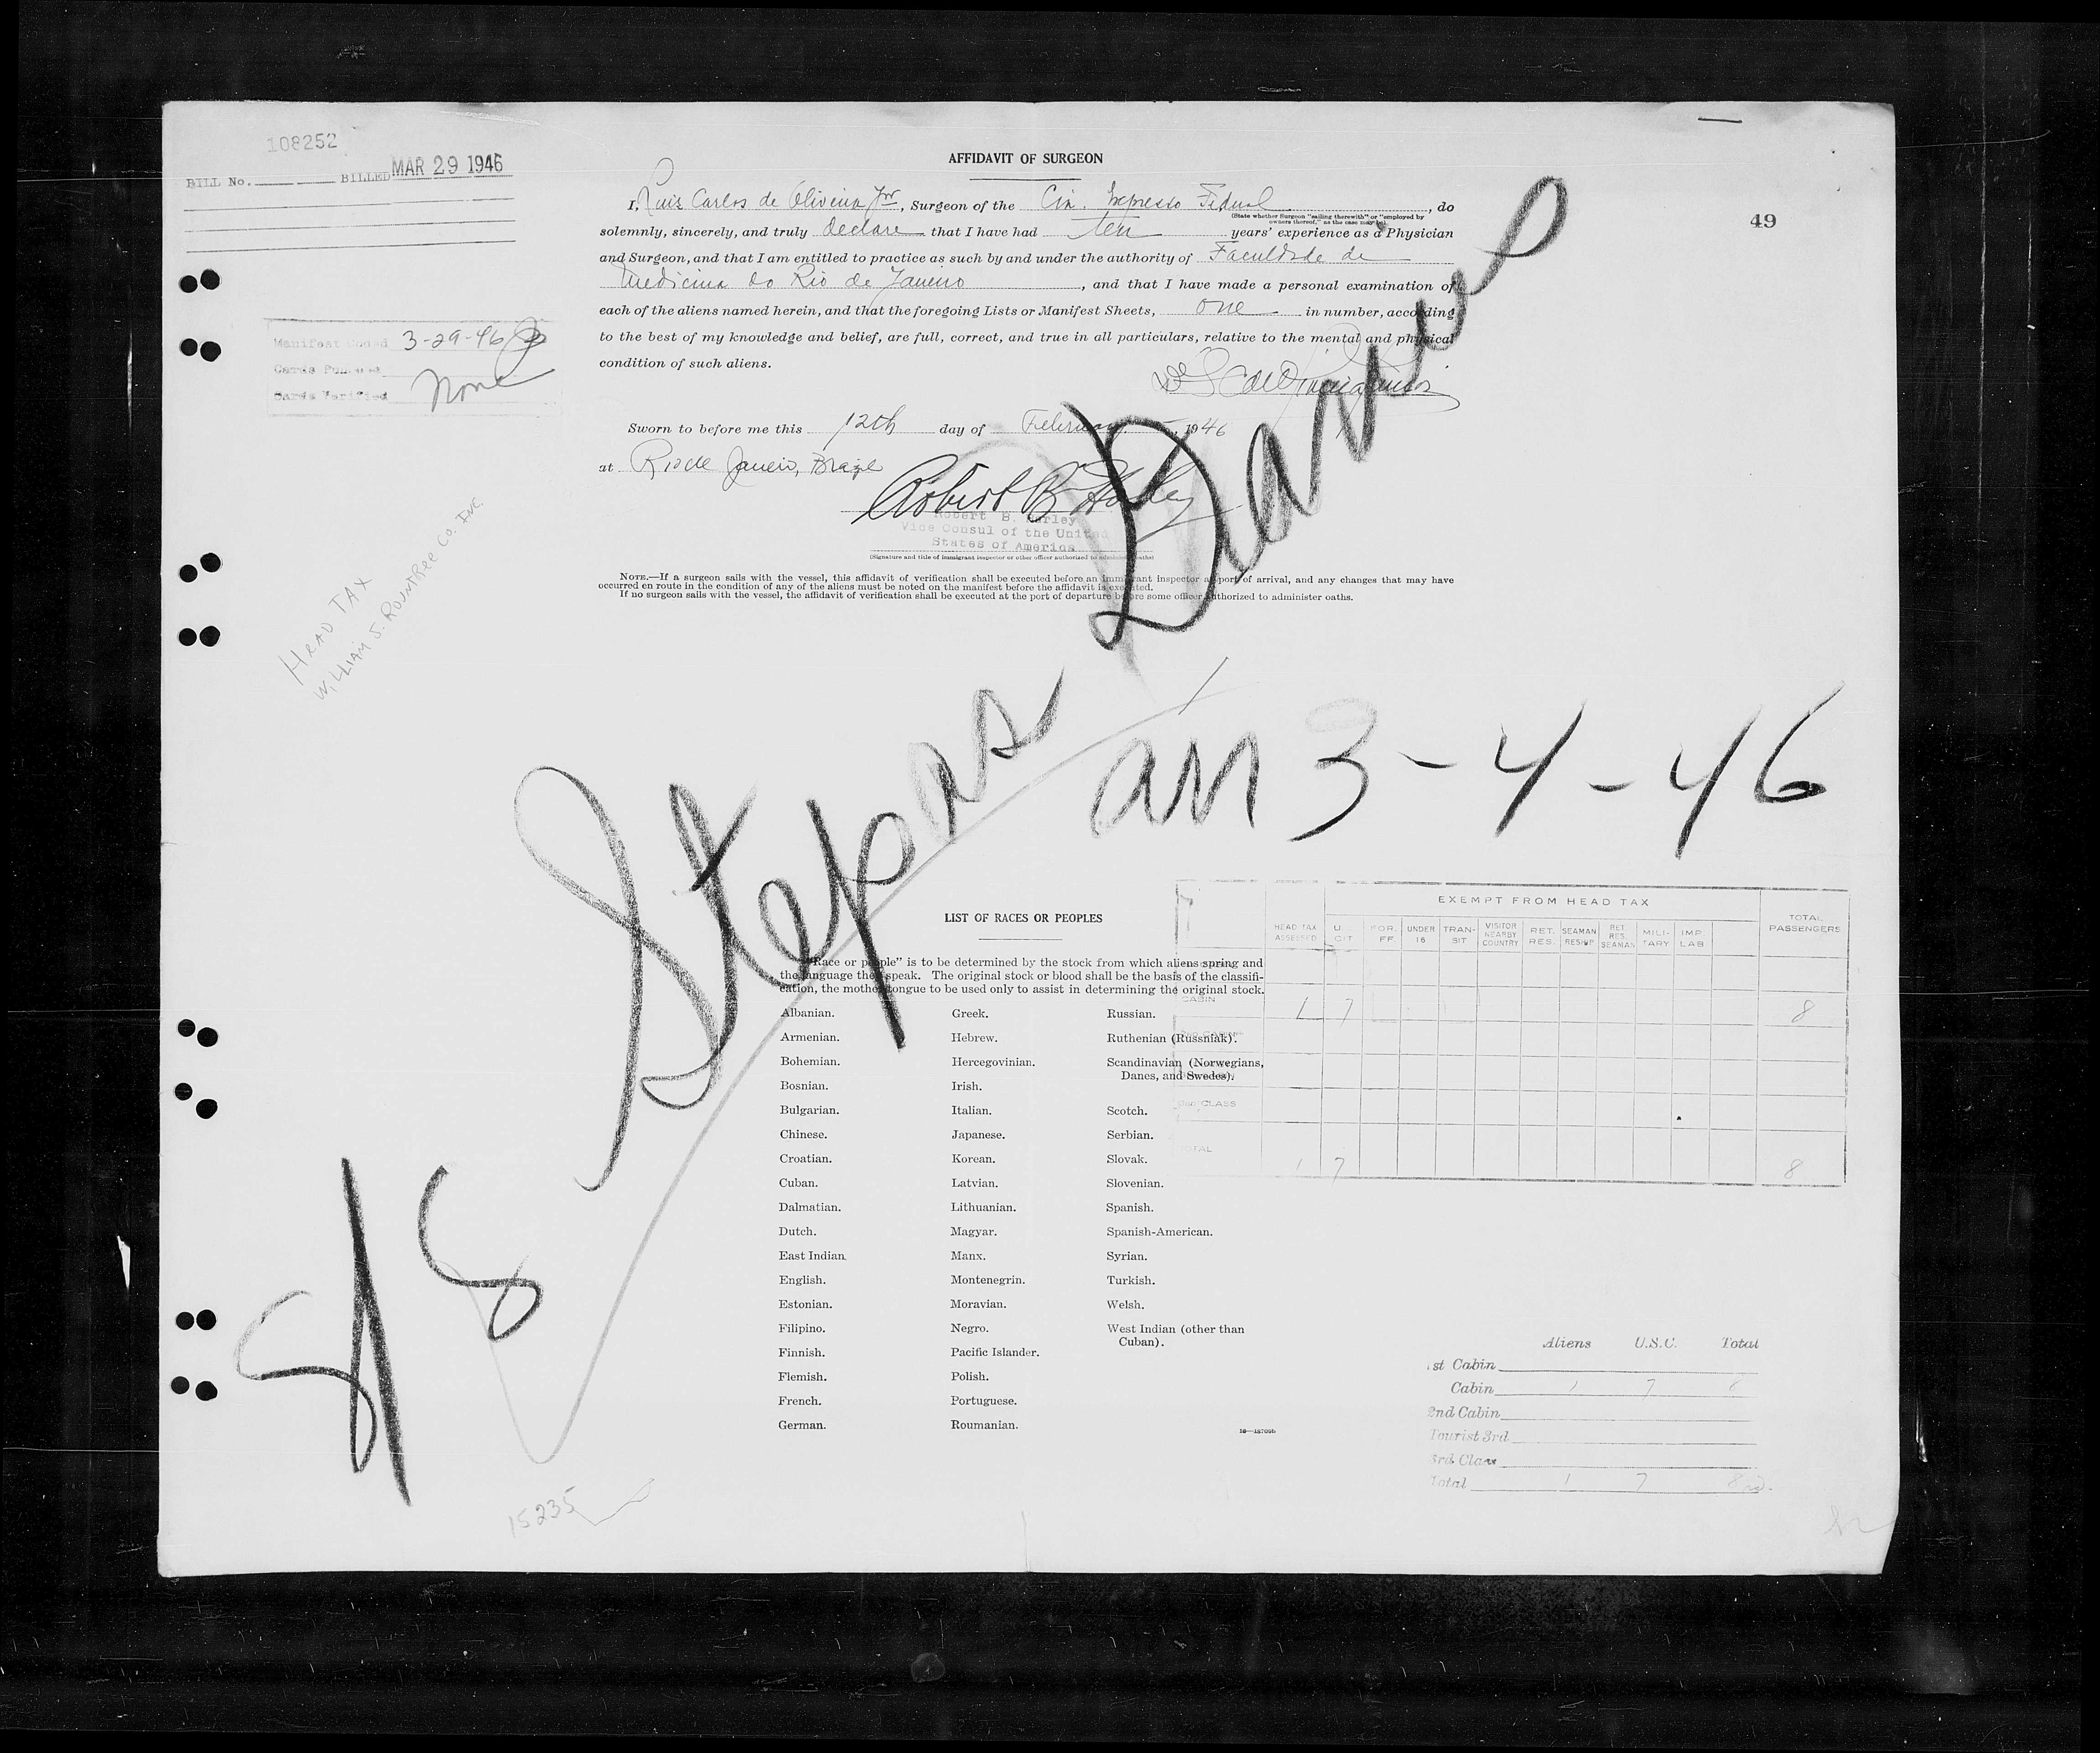 108252
BILL No. BILLED MAR 29 1946
AFFIDAVIT OF SURGEON
49
I, Luis Carlos de Oliveira Jnr, Surgeon of the Cia. Expresso Federal, do
(State whether Surgeon "sailing therewith" or "employed by
owners thereof," as the case may be)
solemnly, sincerely, and truly declare that I have had ten years' experience as a Physician
and Surgeon, and that I am entitled to practice as such by and under the authority of Faculdade de
Medicina do Rio de Janeiro, and that I have made a personal examination of
each of the aliens named herein, and that the foregoing Lists or Manifest Sheets, one in number, according
to the best of my knowledge and belief, are full, correct, and true in all particulars, relative to the mental and physical
condition of such aliens.
Manifest Coded 3-29-46
Cards Punched
Cards Verified None
Sworn to before me this 12th day of February, 1946
at Rio de Janeiro, Brazil
Robert B. Harley
Robert B. Harley
Vice Consul of the United
States of America
(Signature and title of immigrant inspector or other officer authorized to administer oaths)
NOTE.—If a surgeon sails with the vessel, this affidavit of verification shall be executed before an immigrant inspector at port of arrival, and any changes that may have
occurred en route in the condition of any of the aliens must be noted on the manifest before the affidavit is executed.
If no surgeon sails with the vessel, the affidavit of verification shall be executed at the port of departure before some officer authorized to administer oaths.
HEAD TAX
WILLIAM J. ROUNTREE CO. INC.
S/S Stepas Darius
arr 3-4-46
LIST OF RACES OR PEOPLES
"Race or people" is to be determined by the stock from which aliens spring and
the language they speak. The original stock or blood shall be the basis of the classifi-
cation, the mother tongue to be used only to assist in determining the original stock.
Albanian. Greek. Russian.
Armenian. Hebrew. Ruthenian (Russniak).
Bohemian. Hercegovinian. Scandinavian (Norwegians,
Danes, and Swedes).
Bosnian. Irish.
Bulgarian. Italian. Scotch.
Chinese. Japanese. Serbian.
Croatian. Korean. Slovak.
Cuban. Latvian. Slovenian.
Dalmatian. Lithuanian. Spanish.
Dutch. Magyar. Spanish-American.
East Indian. Manx. Syrian.
English. Montenegrin. Turkish.
Estonian. Moravian. Welsh.
Filipino. Negro. West Indian (other than
Cuban).
Finnish. Pacific Islander.
Flemish. Polish.
French. Portuguese.
German. Roumanian.
EXEMPT FROM HEAD TAX
HEAD TAX ASSESSED U. CIT FOR. FF. UNDER 16 TRANSIT VISITOR NEARBY COUNTRY RET. RES. SEAMAN RESHIP RET. RES. SEAMAN MILITARY IMP LAB TOTAL PASSENGERS
CABIN 1 7 8
2nd CABIN
3rd CLASS
TOTAL 1 7 8
Aliens U.S.C. Total
1st Cabin
Cabin 1 7 8
2nd Cabin
Tourist 3rd
3rd Class
Total 1 7 8
15235